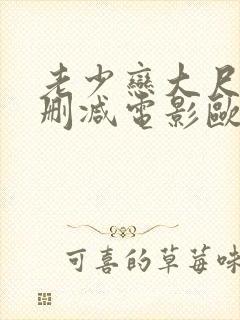 老少戀大尺
刪減電影歐
可喜的草莓味